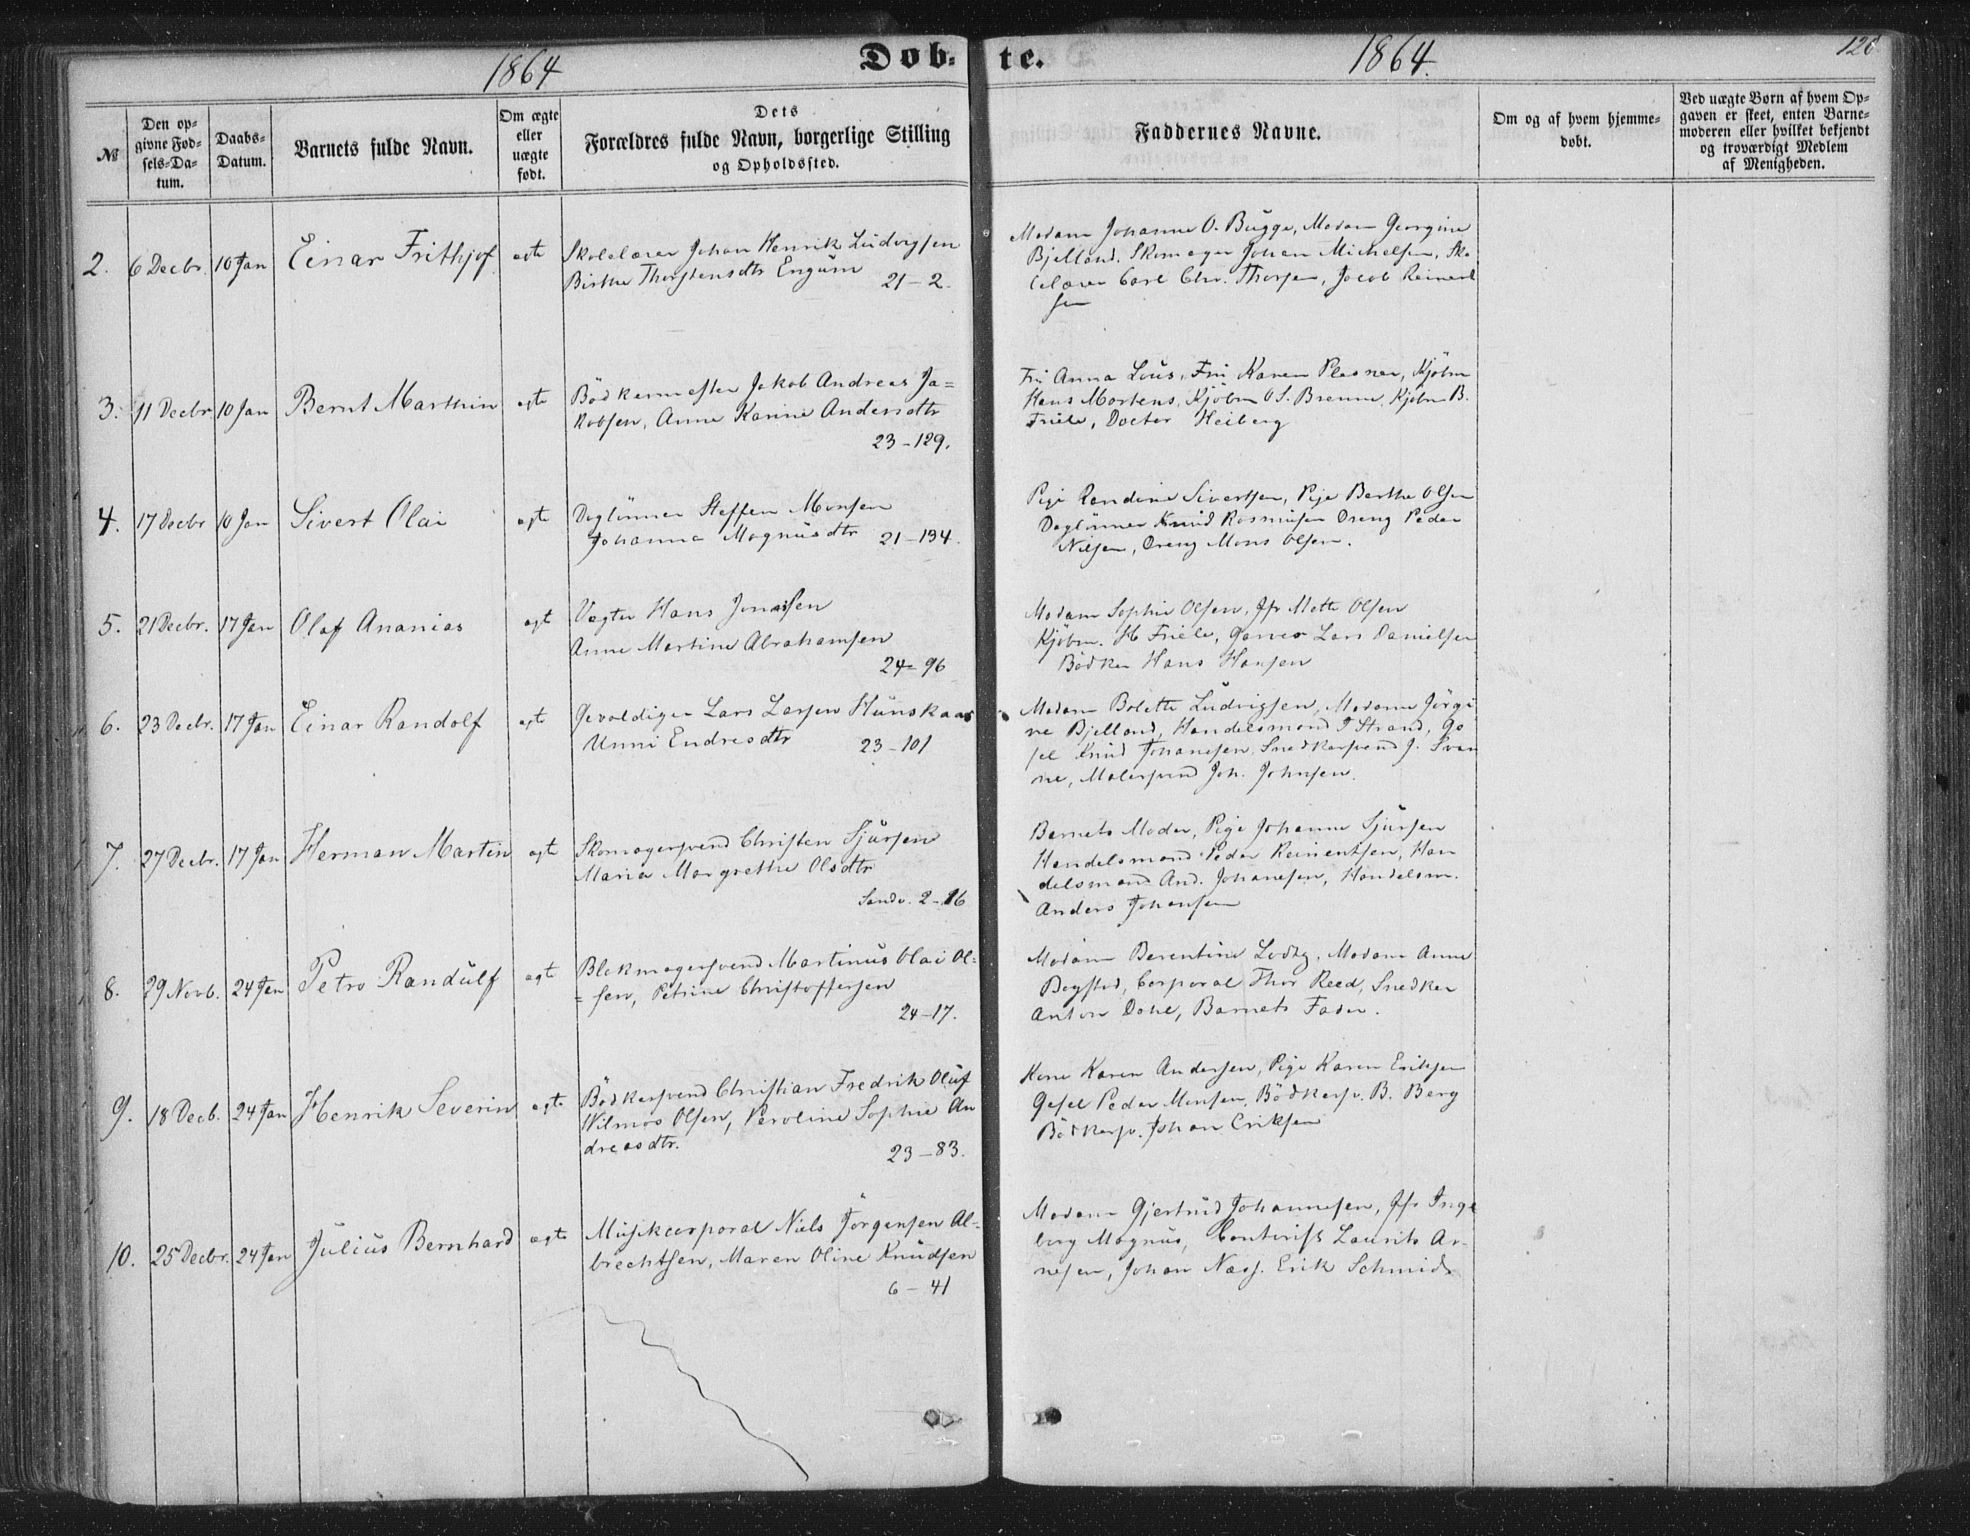 1864
Döb-
te.
1864.
128
№
Den op-
givne Fød-
sels-Da-
tum.
Daabs-
Datum.
Barnets fulde Navn.
Om ægte
eller
uægte
født.
Dets
Forældres fulde Navn, borgerlige Stilling
og Opholdssted.
Faddernes Navne.
Om og af hvem hjemme-
døbt.
Ved uægte Børn af hvem Op-
gaven er skeet, enten Barne-
moderen eller hvilket bekjendt
og troværdigt Medlem
af Menigheden.
2. 6 Decbr. 10 Jan Einar Frithjof egte
Skolelærer Johan Henrik Ludvigsen
Birthe Thorstensdtr Engum
21-2.
Madam Johanne O. Bugge, Madam Georgine
Bjelland, Skomager Johan Michelsen, Sko
lelærer Carl Chr. Thorsen, Jacob Reinert
sen
3. 11 Decbr 10 Jan Bernt Marthin egte
Bödkermester Jakob Andreas Ja=
kobsen, Anne Karine Andersdtr
23-129.
Frk Anna Lous, Frk Karen Plesner, Kjöbm
Hans Mortens, Kjöbm O S. Brenne, Kjöbm B.
Friele, Doctor Heiberg
4. 17 Decbr 10 Jan Sivert Olai egte
Daglönner Steffen Monsen
Johanna Magnusdtr 21-134.
Pige Randine Sivertsen, Pige Berthe Olsen
Daglönner Knud Rasmusen Dreng Peder
Nilsen, Dreng Mons Olsen.
5. 21 Decbr. 17 Jan Olaf Ananias egt
Vægter Hans Jonassen
Anne Martine Abrahamsen
24-96
Madam Sophie Olsen, Jfr Mette Olsen
Kjöbm. H Friele, Garver Lars Danielsen
Bödker Hans Hansen
6. 23 Decbr. 17 Jan Einar Randolf egte
Gevaldiger Lars Larsen Hunskaar
Unni Endresdtr 23-101
Madam Bolette Ludvigsen, Madam Jörgi
ne Bjelland, Handelsmand T Strand, Ge
sel Knud Johanesen, Snedkersvend J. Svan
ne, Malersvend Joh. Johnsen.
7. 27 Decbr. 17 Jan Herman Martin egte
Skomagersvend Christen Sjursen
Maria Margrethe Olsdtr
Sandv. 2-16
Barnets Moder, Pige Johanne Sjursen
Handelsmand Peder Reinertsen, Han
delsmand And. Johanesen, Handelsm.
Anders Johansen
8. 29 Novb. 24 Jan Petro Randulf egt
Blokmagersvend Martinus Olai Ol=
=sen, Petrine Christoffersen
24-17.
Madam Berentine Lodtz, Madam Anne
Bogstad, Corporal Thor Reed, Snedker
Anton Dahl, Barnets Fader.
9. 18 Decb. 24 Jan Henrik Severin egte
Bödkersvend Christian Fredrik Oluf
Wilmos Olsen, Peroline Sophie An
dreasdtr.
23-83.
Kone Karen Andersen, Pige Karen Eriksen
Gesel Peder Monsen, Bödkersv. B. Berg
Bödkersv. Johan Eriksen
10. 25 Decbr. 24 Jan Julius Bernhard egte
Musikcorporal Niels Jörgensen Al-
brechtsen, Maren Oline Knudsen
6-41
Madam Gjertrud Johannesen, Jfr Inge
borg Magnus, Contorist Laurits Ar-
nesen, Johan Næss. Erik Schmidt